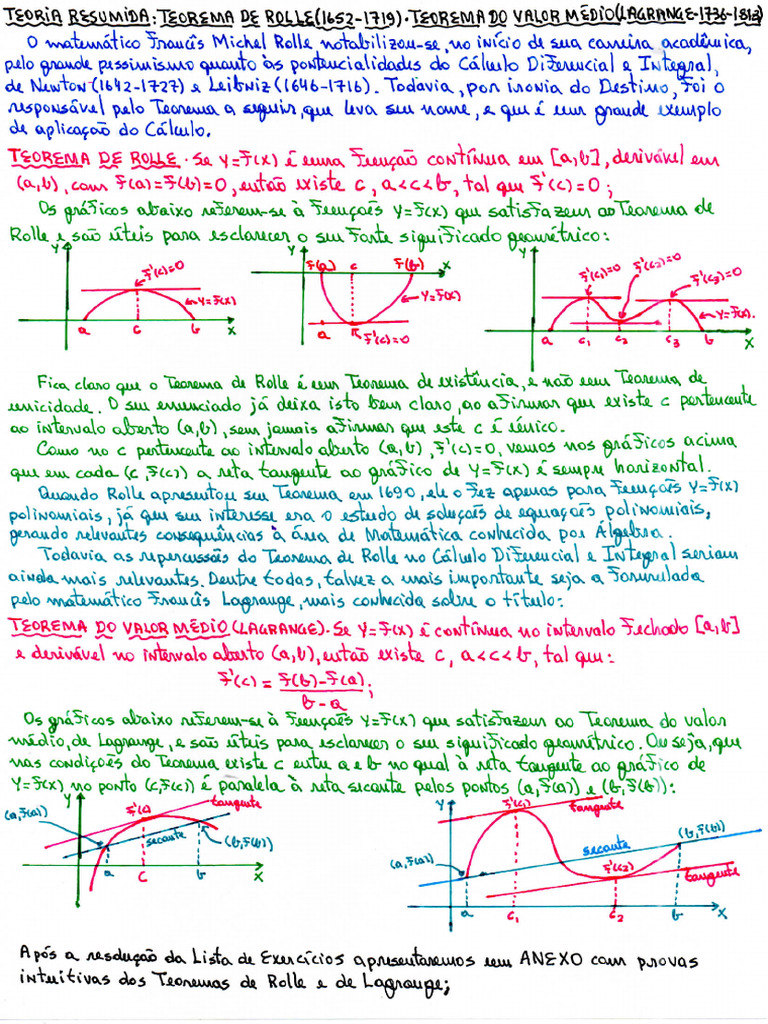 TEORIA RESUMIDA: TEOREMA DE ROLLE (1652-1719). TEOREMA DO VALOR MÉDIO (LAGRANGE-1736-1813)
O matemático Francês Michel Rolle notabilizou-se, no início de sua carreira acadêmica,
pelo grande pessimismo quanto às pontencialidades do Cálculo Diferencial e Integral,
de Newton (1642-1727) e Leibniz (1646-1716). Todavia, por ironia do Destino, foi o
responsável pelo Teorema a seguir, que leva seu nome, e que é um grande exemplo
de aplicação do Cálculo.
TEOREMA DE ROLLE. Se y=f(x) é uma função contínua em [a,b], derivável em
(a,b), com f(a)=f(b)=0, então existe c, a<c<b, tal que f'(c)=0;
Os gráficos abaixo referem-se à funções y=f(x) que satisfazem ao Teorema de
Rolle e são úteis para esclarecer o seu forte significado geométrico:
y f'(c)=0 y=f(x) a c b x
y f(a) c f(b) x y=f(x) a f'(c)=0
y f'(c1)=0 f'(c2)=0 f'(c3)=0 y=f(x). a c1 c2 c3 b x
Fica claro que o Teorema de Rolle é um Teorema de existência, e não um Teorema de
unicidade. O seu enunciado já deixa isto bem claro, ao afirmar que existe c pertencente
ao intervalo aberto (a,b), sem jamais afirmar que este c é único.
Como no c pertencente ao intervalo aberto (a,b), f'(c)=0, vemos nos gráficos acima
que em cada (c,f(c)) a reta tangente ao gráfico de y=f(x) é sempre horizontal.
Quando Rolle apresentou seu Teorema em 1690, ele o fez apenas para funções y=f(x)
polinomiais, já que seu interesse era o estudo de soluções de equações polinomiais,
gerando relevantes consequências à área de Matemática conhecida por Álgebra.
Todavia as repercussões do Teorema de Rolle no Cálculo Diferencial e Integral seriam
ainda mais relevantes. Dentre todas, talvez a mais importante seja a formulada
pelo matemático Francês Lagrange, mais conhecida sobre o título:
TEOREMA DO VALOR MÉDIO (LAGRANGE). Se y=f(x) é contínua no intervalo fechado [a,b]
e derivável no intervalo aberto (a,b), então existe c, a<c<b, tal que:
f'(c) = f(b)-f(a);
b-a
Os gráficos abaixo referem-se à funções y=f(x) que satisfazem ao Teorema do valor
médio, de Lagrange, e são úteis para esclarecer o seu significado geométrico. Ou seja, que
nas condições do Teorema existe c entre a e b no qual à reta tangente ao gráfico de
y=f(x) no ponto (c,f(c)) é paralela à reta secante pelos pontos (a,f(a)) e (b,f(b)):
y (a,f(a)) f'(c) tangente secante (b,f(b)) a c b x
y f'(c1) tangente secante (b,f(b)) (a,f(a)) f'(c2) tangente a c1 c2 b x
Após a resolução da Lista de Exercícios apresentaremos um ANEXO com provas
intuitivas dos Teoremas de Rolle e de Lagrange;